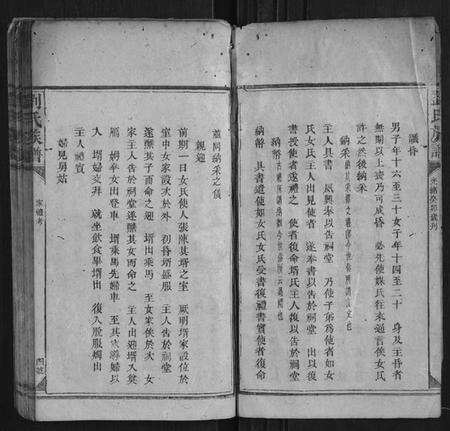 議昏
男子年十六至三十女子年十四至二十　身及主昏者
無期以上喪乃可成昏　必先使媒氏往來通言俟女氏
許之然後納采
納采
主人具書　夙興奉以告于祠堂　乃使子弟爲使者如女
氏女氏主人出見使者　遂奉書以告於祠堂　出以復
書授使者遂禮之　使者復命壻氏主人復以告于祠堂
納幣
具書遣使如女氏女氏受書復禮書賓使者復命
並同納采之儀
親迎
前期一日女氏使人張陳其壻之室　厥明壻家設位於
室中女家設次於外　初昏壻盛服　主人告於祠堂
遂醮其子而命之迎　壻出乘馬　至女家俟於次　女
家主人告於祠堂遂醮其女而命之　主人出迎壻入奠
鴈　姆奉女出登車　壻乘馬先婦車　至其家導婦以
入　壻婦交拜　就坐飲食畢壻出　復入脫服燭出
主人禮賓
婦見舅姑
劉氏族譜
家禮考